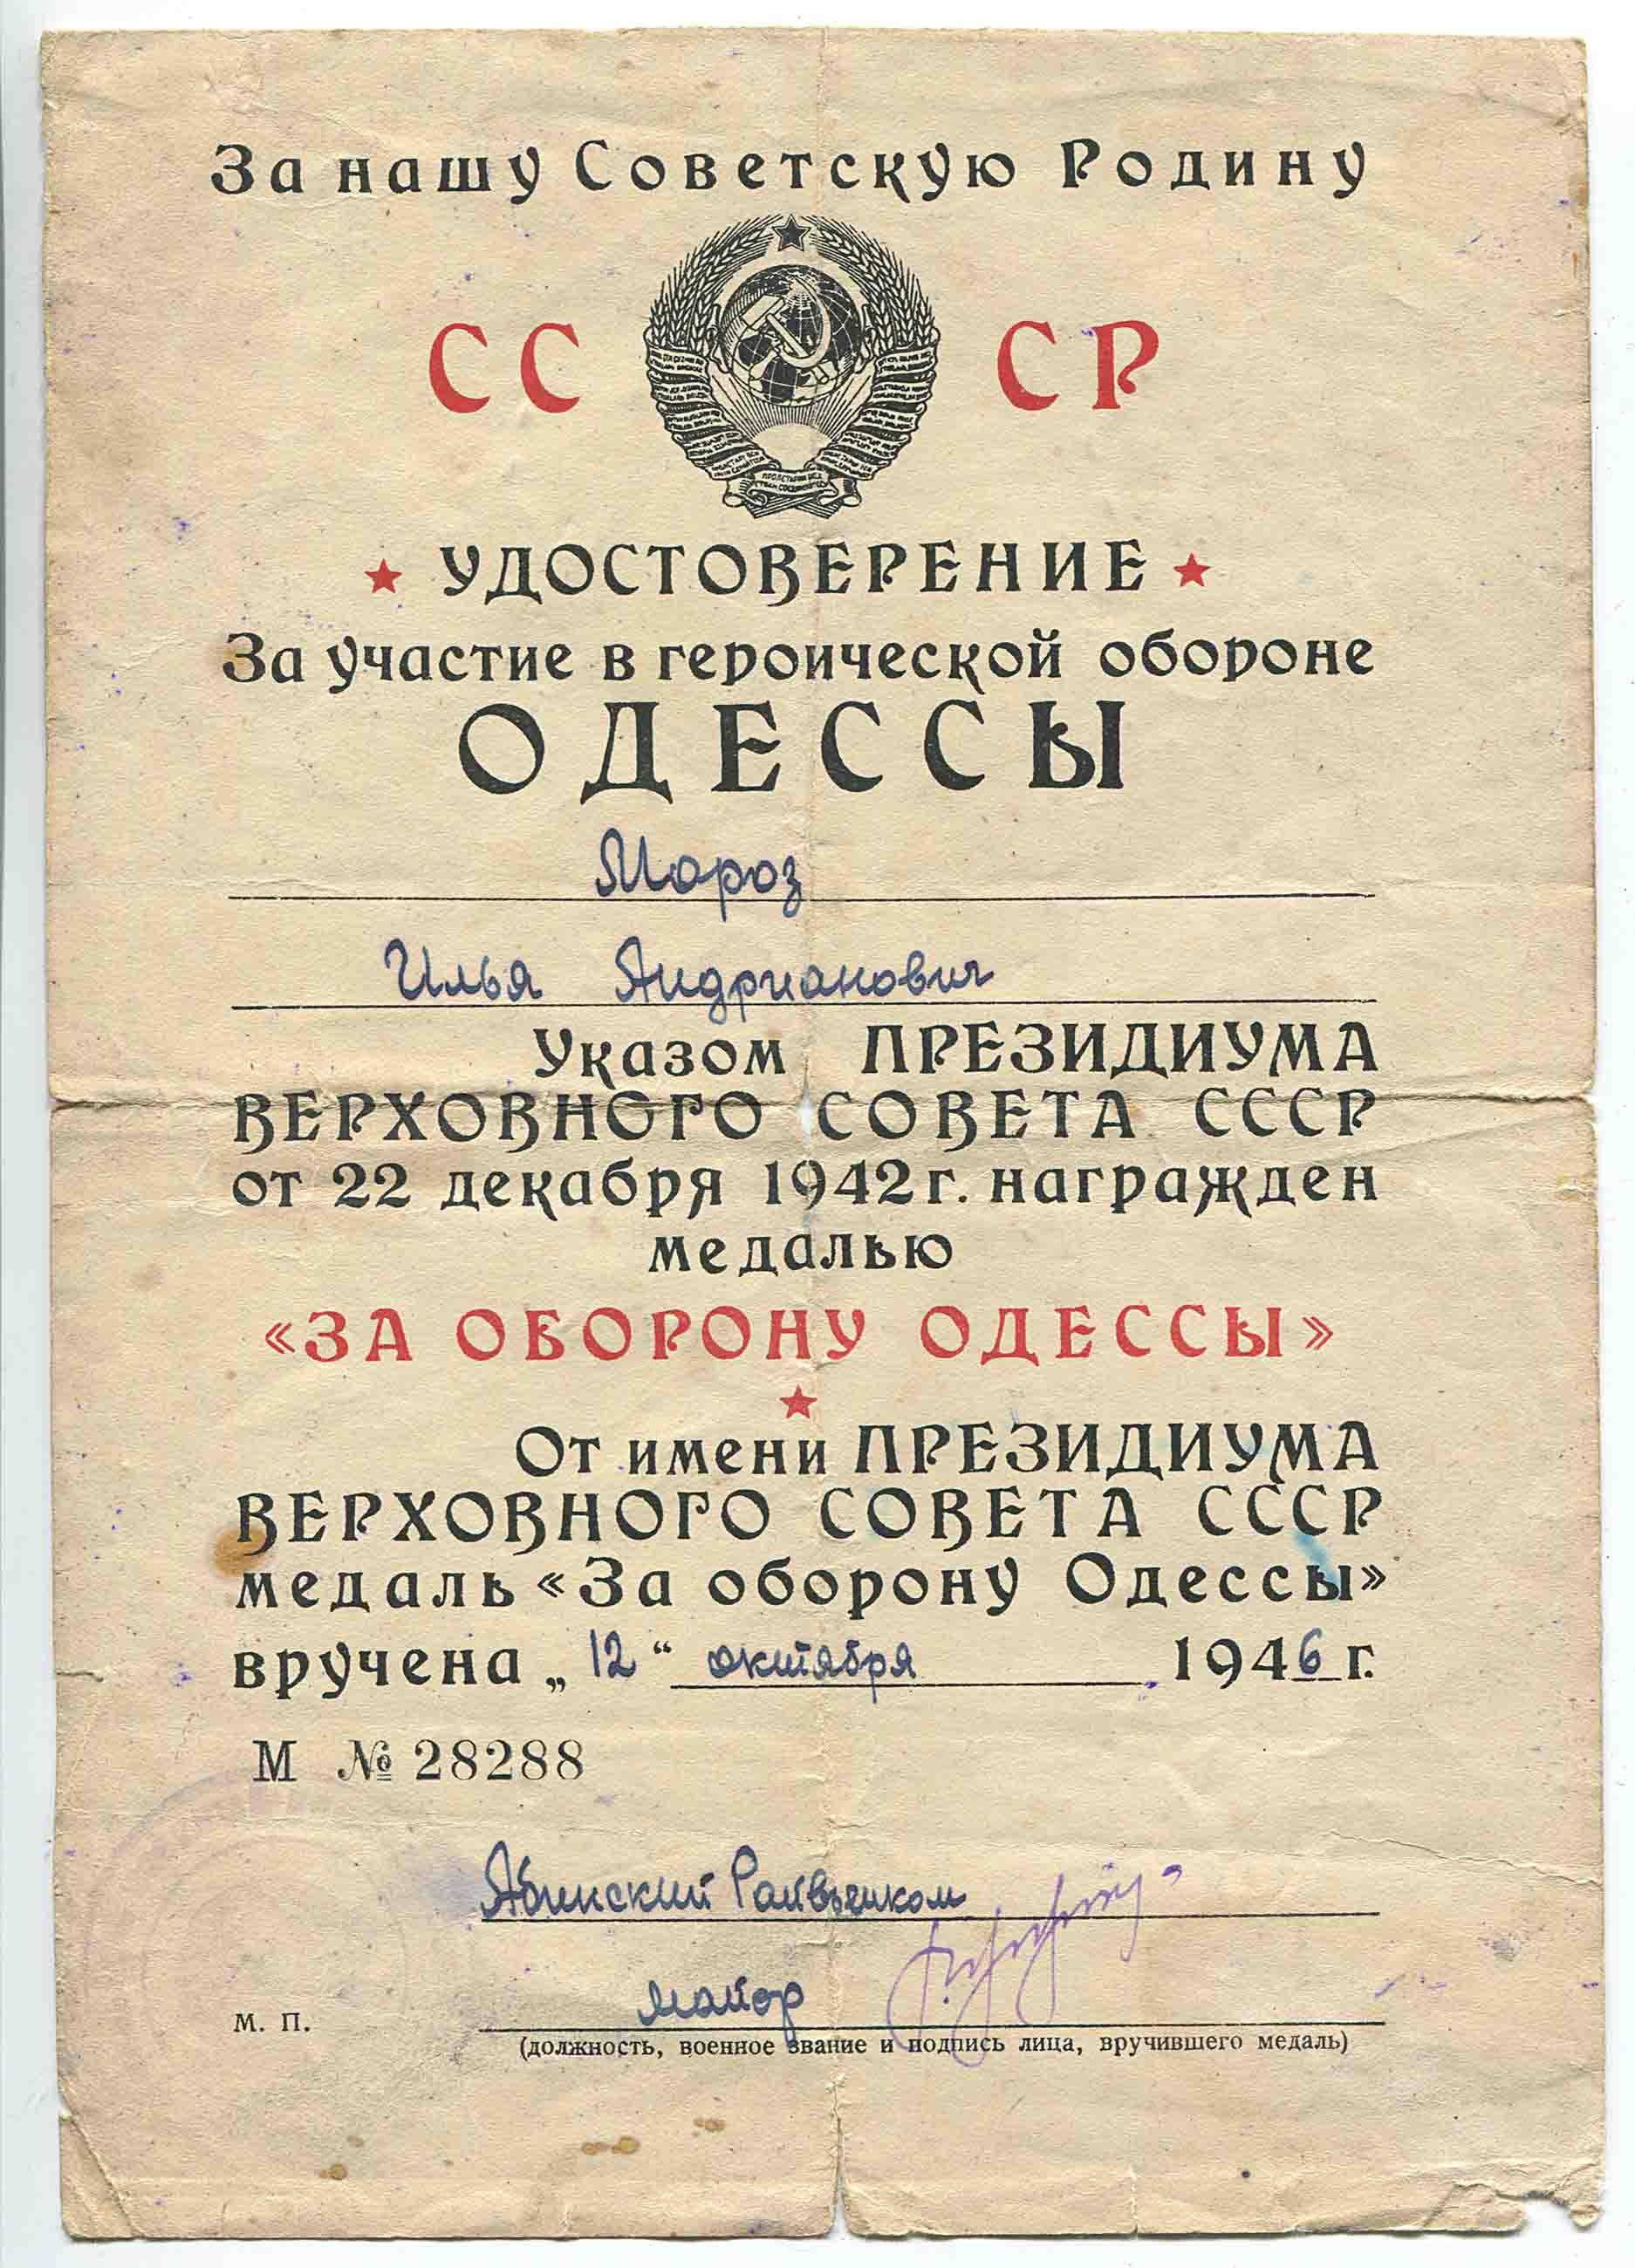 За нашу Советскую Родину
СС СР
УДОСТОВЕРЕНИЕ
За участие в героической обороне
ОДЕССЫ
Мороз
Илья Андрианович
Указом ПРЕЗИДИУМА
ВЕРХОВНОГО СОВЕТА СССР
от 22 декабря 1942 г. награжден
медалью
«ЗА ОБОРОНУ ОДЕССЫ»
От имени ПРЕЗИДИУМА
ВЕРХОВНОГО СОВЕТА СССР
медаль «За оборону Одессы»
вручена „12“ октября 1946 г.
М № 28288
Абинский Райвоенком
майор
М. П.
(должность, военное звание и подпись лица, вручившего медаль)